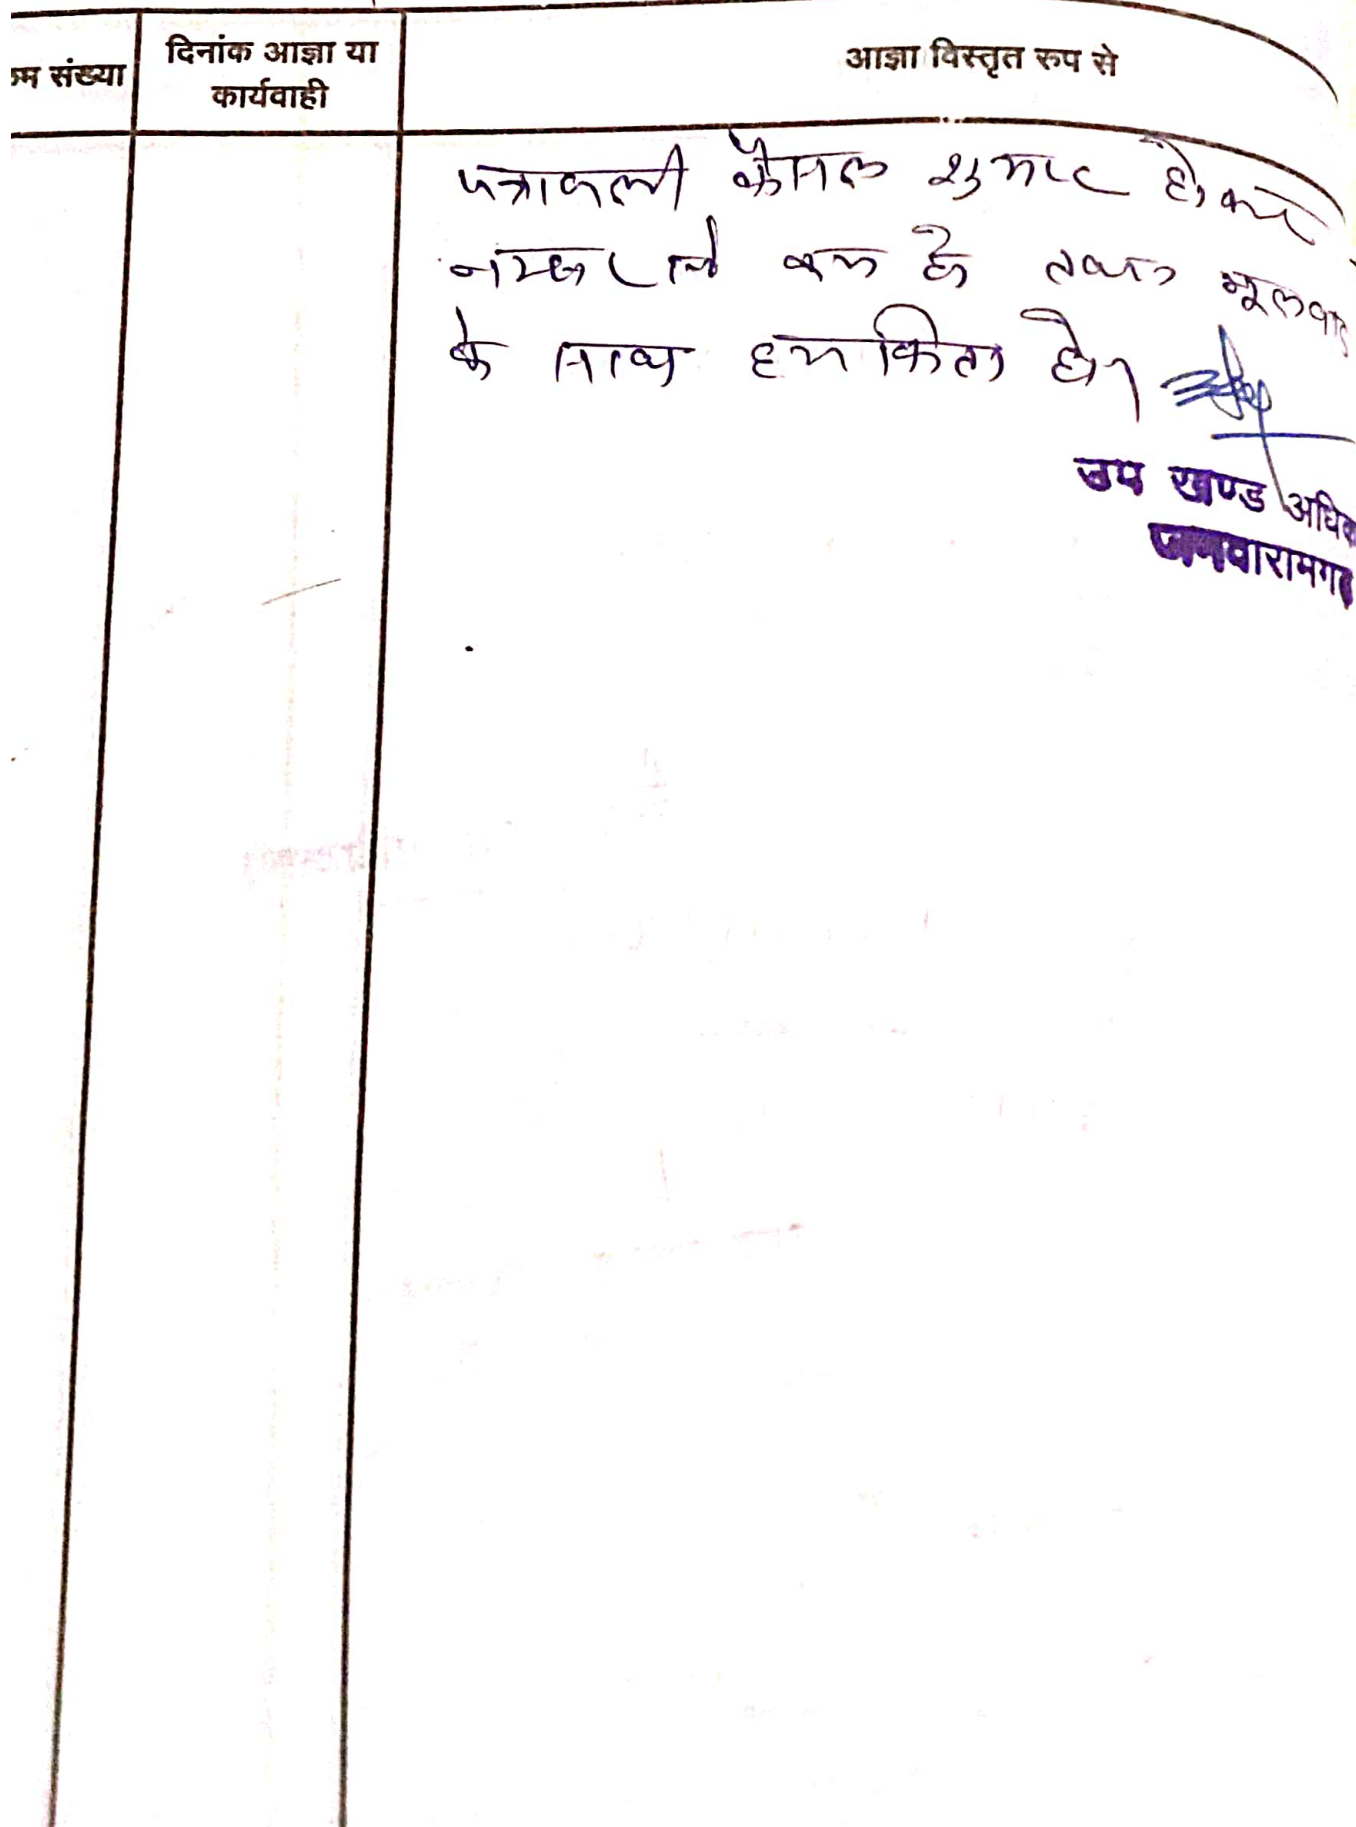 क्रम संख्या
दिनांक आज्ञा या
कार्यवाही
आज्ञा विस्तृत रुप से
पत्रावली फैसल शुमार होकर
नम्बर से कम हो तथा मूलवाद
के साथ हमकिता हो।
उप खण्ड अधिक
जमवारामगढ